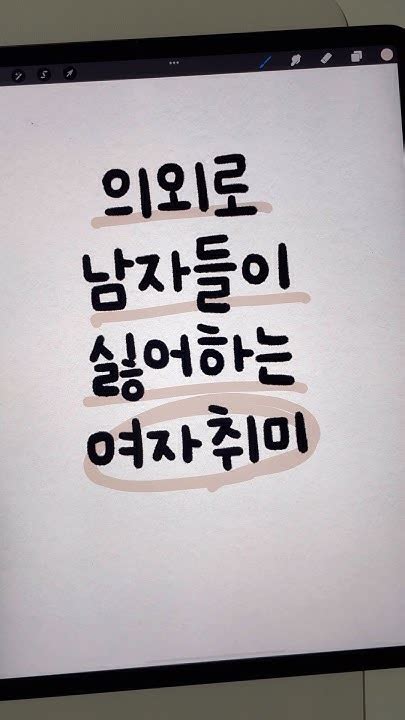 의외로
남자들이
싫어하는
여자 취미